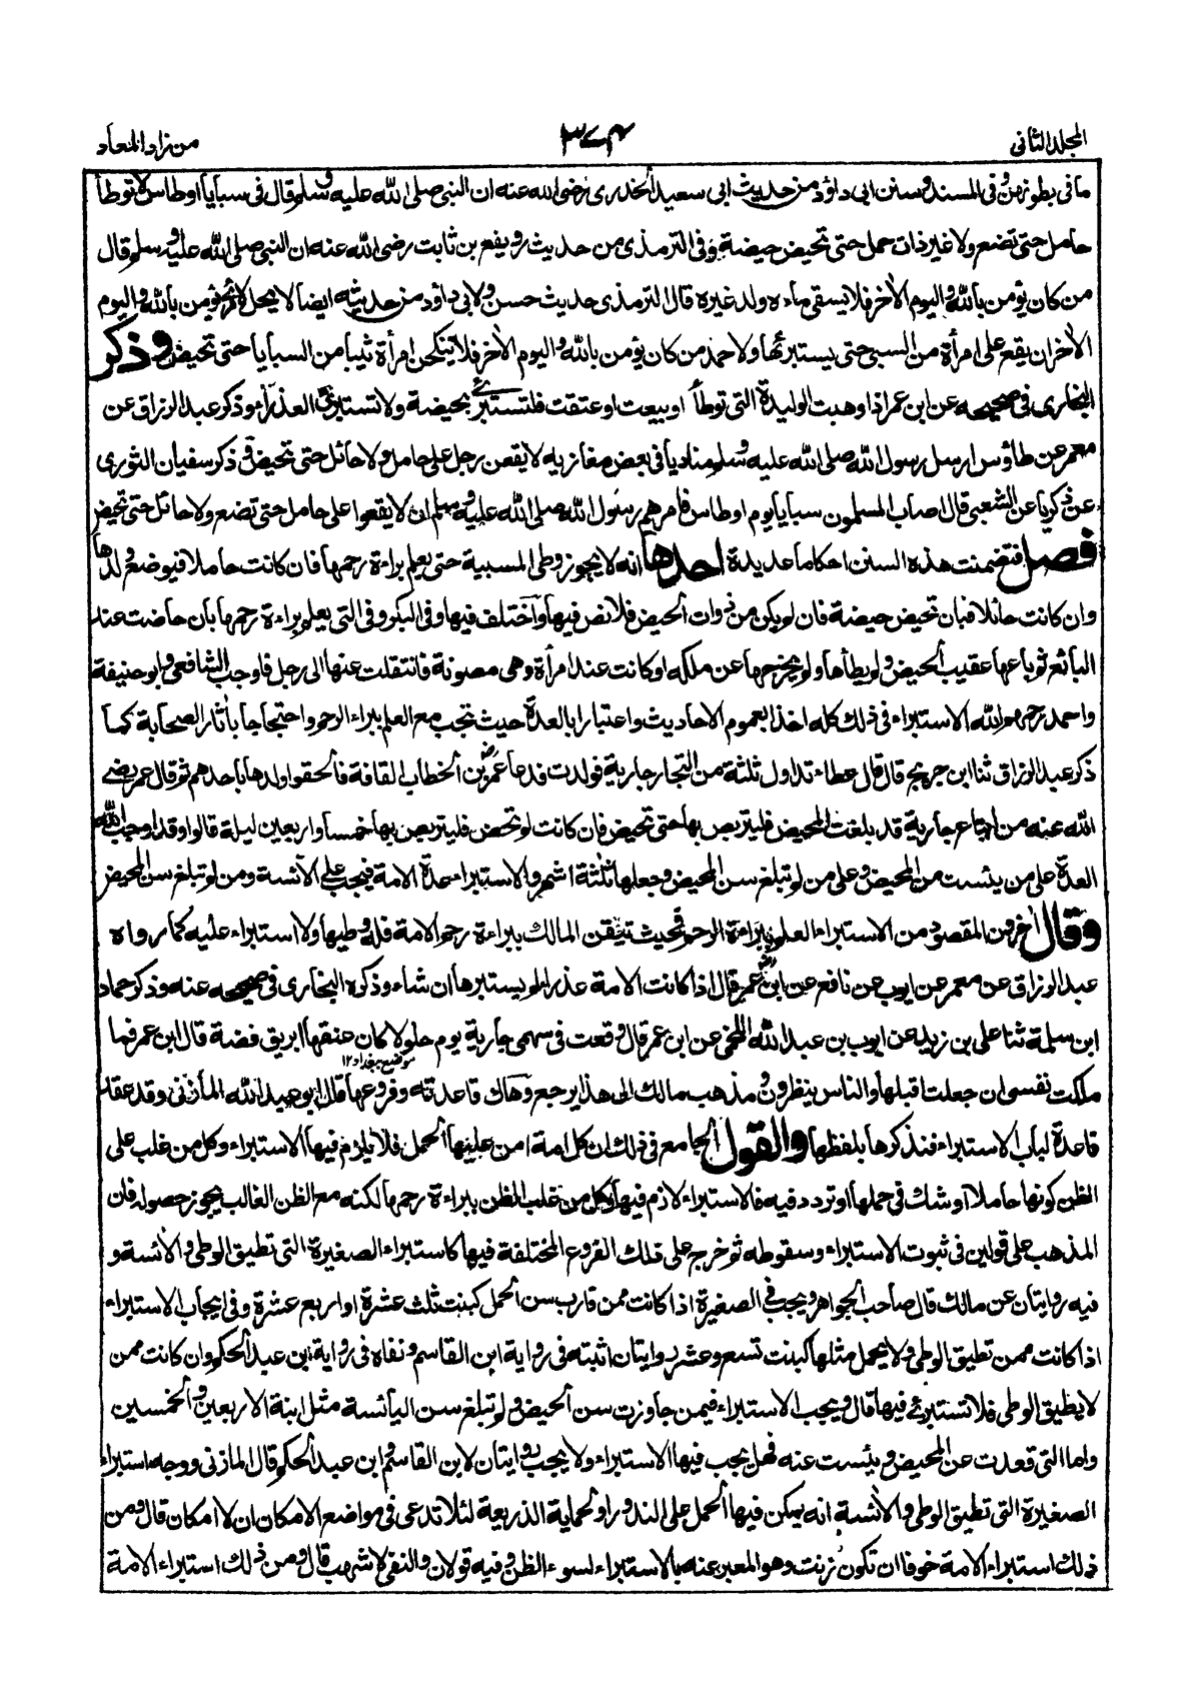 المجلد الثانی
٣٧٤
من زاد المعاد
ما فی بطونهن و فی المسند و سنن ابی داؤد من حدیث ابی سعید الخدری رضی الله عنه ان النبی صلی الله علیه وسلم قال فی سبایا اوطاس لا توطأ
حامل حتی تضع ولا غیر ذات حمل حتی تحیض حیضة وفی الترمذی من حدیث رویفع بن ثابت رضی الله عنه ان النبی صلی الله علیه وسلم قال
من کان یؤمن بالله والیوم الاخر فلا یسقی ماءه ولد غیره قال الترمذی حدیث حسن ولابی داؤد من حدیثه ایضا لا یحل لامرئ یؤمن بالله والیوم
الاخر ان یقع علی امرأة من السبی حتی یستبرئها ولاحمد من کان یؤمن بالله والیوم الاخر فلا ینکحن امرأة ثیبا من السبایا حتی تحیض وذکر
البخاری فی صحیحه عن ابن عمر اذا وهبت الولیدة التی توطأ او بیعت او عتقت فلتستبرئ بحیضة ولا تستبرئ العذراء وذکر عبد الرزاق عن
معمر عن طاؤس ارسل رسول الله صلی الله علیه وسلم منادیا فی بعض مغازیه لا یقعن رجل علی حامل ولا حائل حتی تحیض وذکر سفیان الثوری
عن زکریا عن الشعبی قال اصاب المسلمون سبایا یوم اوطاس فامرهم رسول الله صلی الله علیه وسلم ان لا یقعوا علی حامل حتی تضع ولا حائل حتی تحیض
فصل فتضمنت هذه السنن احکاما عدیدة احدها انه لا یجوز وطی المسبیة حتی یعلم براءة رحمها فان کانت حاملا فبوضع ولدها
وان کانت حائلا فبان تحیض حیضة فان لم یکن من ذوات الحیض فلا نص فیها واختلف فیها وفی البکر وفی التی یعلم براءة رحمها بان حاضت عند
البائع ثم باعها عقیب الحیض ولم یطأها ولم یخرجها عن ملکه او کانت عند امرأة وهی مصونة فانتقلت عنها الی رجل فاوجب الشافعی وابو حنیفة
واحمد رحمهم الله الاستبراء فی ذلك کله اخذا بعموم الاحادیث واعتبارا بالعدة حیث تجب مع العلم ببراءة الرحم واحتجاجا باٰثار الصحابة کما
ذکر عبد الرزاق ثنا ابن جریج قال قال عطاء تداول ثلثة من التجار جاریة فولدت فدعا عمر بن الخطاب القافة فالحقوا ولدها باحدهم ثم قال عمر رضی
الله عنه من ابتاع جاریة قد بلغت المحیض فلیتربص بها حتی تحیض فان کانت لم تحض فلیتربص بها خمسا واربعین لیلة قالوا وقد اوجب الله
العدة علی من یئست من المحیض وعلی من لم تبلغ سن المحیض وجعلها ثلثة اشهر والاستبراء عدة الامة فیجب علی الاٰئسة ومن لم تبلغ سن المحیض
وقال اخرون المقصود من الاستبراء العلم ببراءة الرحم فحیث تیقن المالك ببراءة رحم الامة فله وطیها ولا استبراء علیه کما رواه
عبد الرزاق عن معمر عن ایوب عن نافع عن ابن عمر قال اذا کانت الامة عذراء لم یستبرها ان شاء وذکره البخاری فی صحیحه عنه وذکر حماد
ابن سلمة ثنا علی بن زید عن ایوب بن عبد الله اللخمی عن ابن عمر قال وقعت فی سهمی جاریة یوم جلولا کان عنقها ابریق فضة قال ابن عمر فما
موضع ببغداد١٢
ملکت نفسی ان جعلت اقبلها والناس ینظرون ومذهب مالك الی هذا یرجع وهاك قاعدته وفروعها قال ابو عبد الله المازنی وقد عقد
قاعدة لباب الاستبراء فنذکرها بلفظها والقول الجامع فی ذلك ان کل امة امن علیها الحمل فلا یلزم فیها الاستبراء وکل من غلب علی
الظن کونها حاملا او شك فی حملها او تردد فیه فالاستبراء لازم فیها وکل من غلب الظن ببراءة رحمها لکنه مع الظن الغالب یجوز حصوله فان
المذهب علی قولین فی ثبوت الاستبراء وسقوطه ثم خرج علی ذلك الفروع المختلفة فیها کاستبراء الصغیرة التی تطیق الوطی والاٰئسة و
فیه روایتان عن مالك قال صاحب الجواهر ویجب فی الصغیرة اذا کانت ممن قارب سن الحمل کبنت ثلث عشرة او اربع عشرة وفی ایجاب الاستبراء
اذا کانت ممن تطیق الوطی ولا یحمل مثلها کبنت تسع وعشر روایتان اثبته فی روایة ابن القاسم ونفاه فی روایة ابن عبد الحکم وان کانت ممن
لا یطیق الوطی فلا تستبرئ فیها قال ویجب الاستبراء فیمن جاوزت سن الحیض ولم تبلغ سن الیائسة مثل ابنة الاربعین والخمسین
واما التی قعدت عن المحیض ویئست عنه فهل یجب فیها الاستبراء ولا یجب روایتان لابن القاسم وابن عبد الحکم قال المازنی ووجه استبراء
الصغیرة التی تطیق الوطی والاٰئسة انه یمکن فیها الحمل علی الندور او لحمایة الذریعة لئلا تدعی فی مواضع الامکان ان لا امکان قال ومن
ذلك استبراء الامة خوفا ان تکون زنت وهو المعبر عنه بالاستبراء لسوء الظن وفیه قولان والنفی لاشهب قال ومن ذلك استبراء الامة